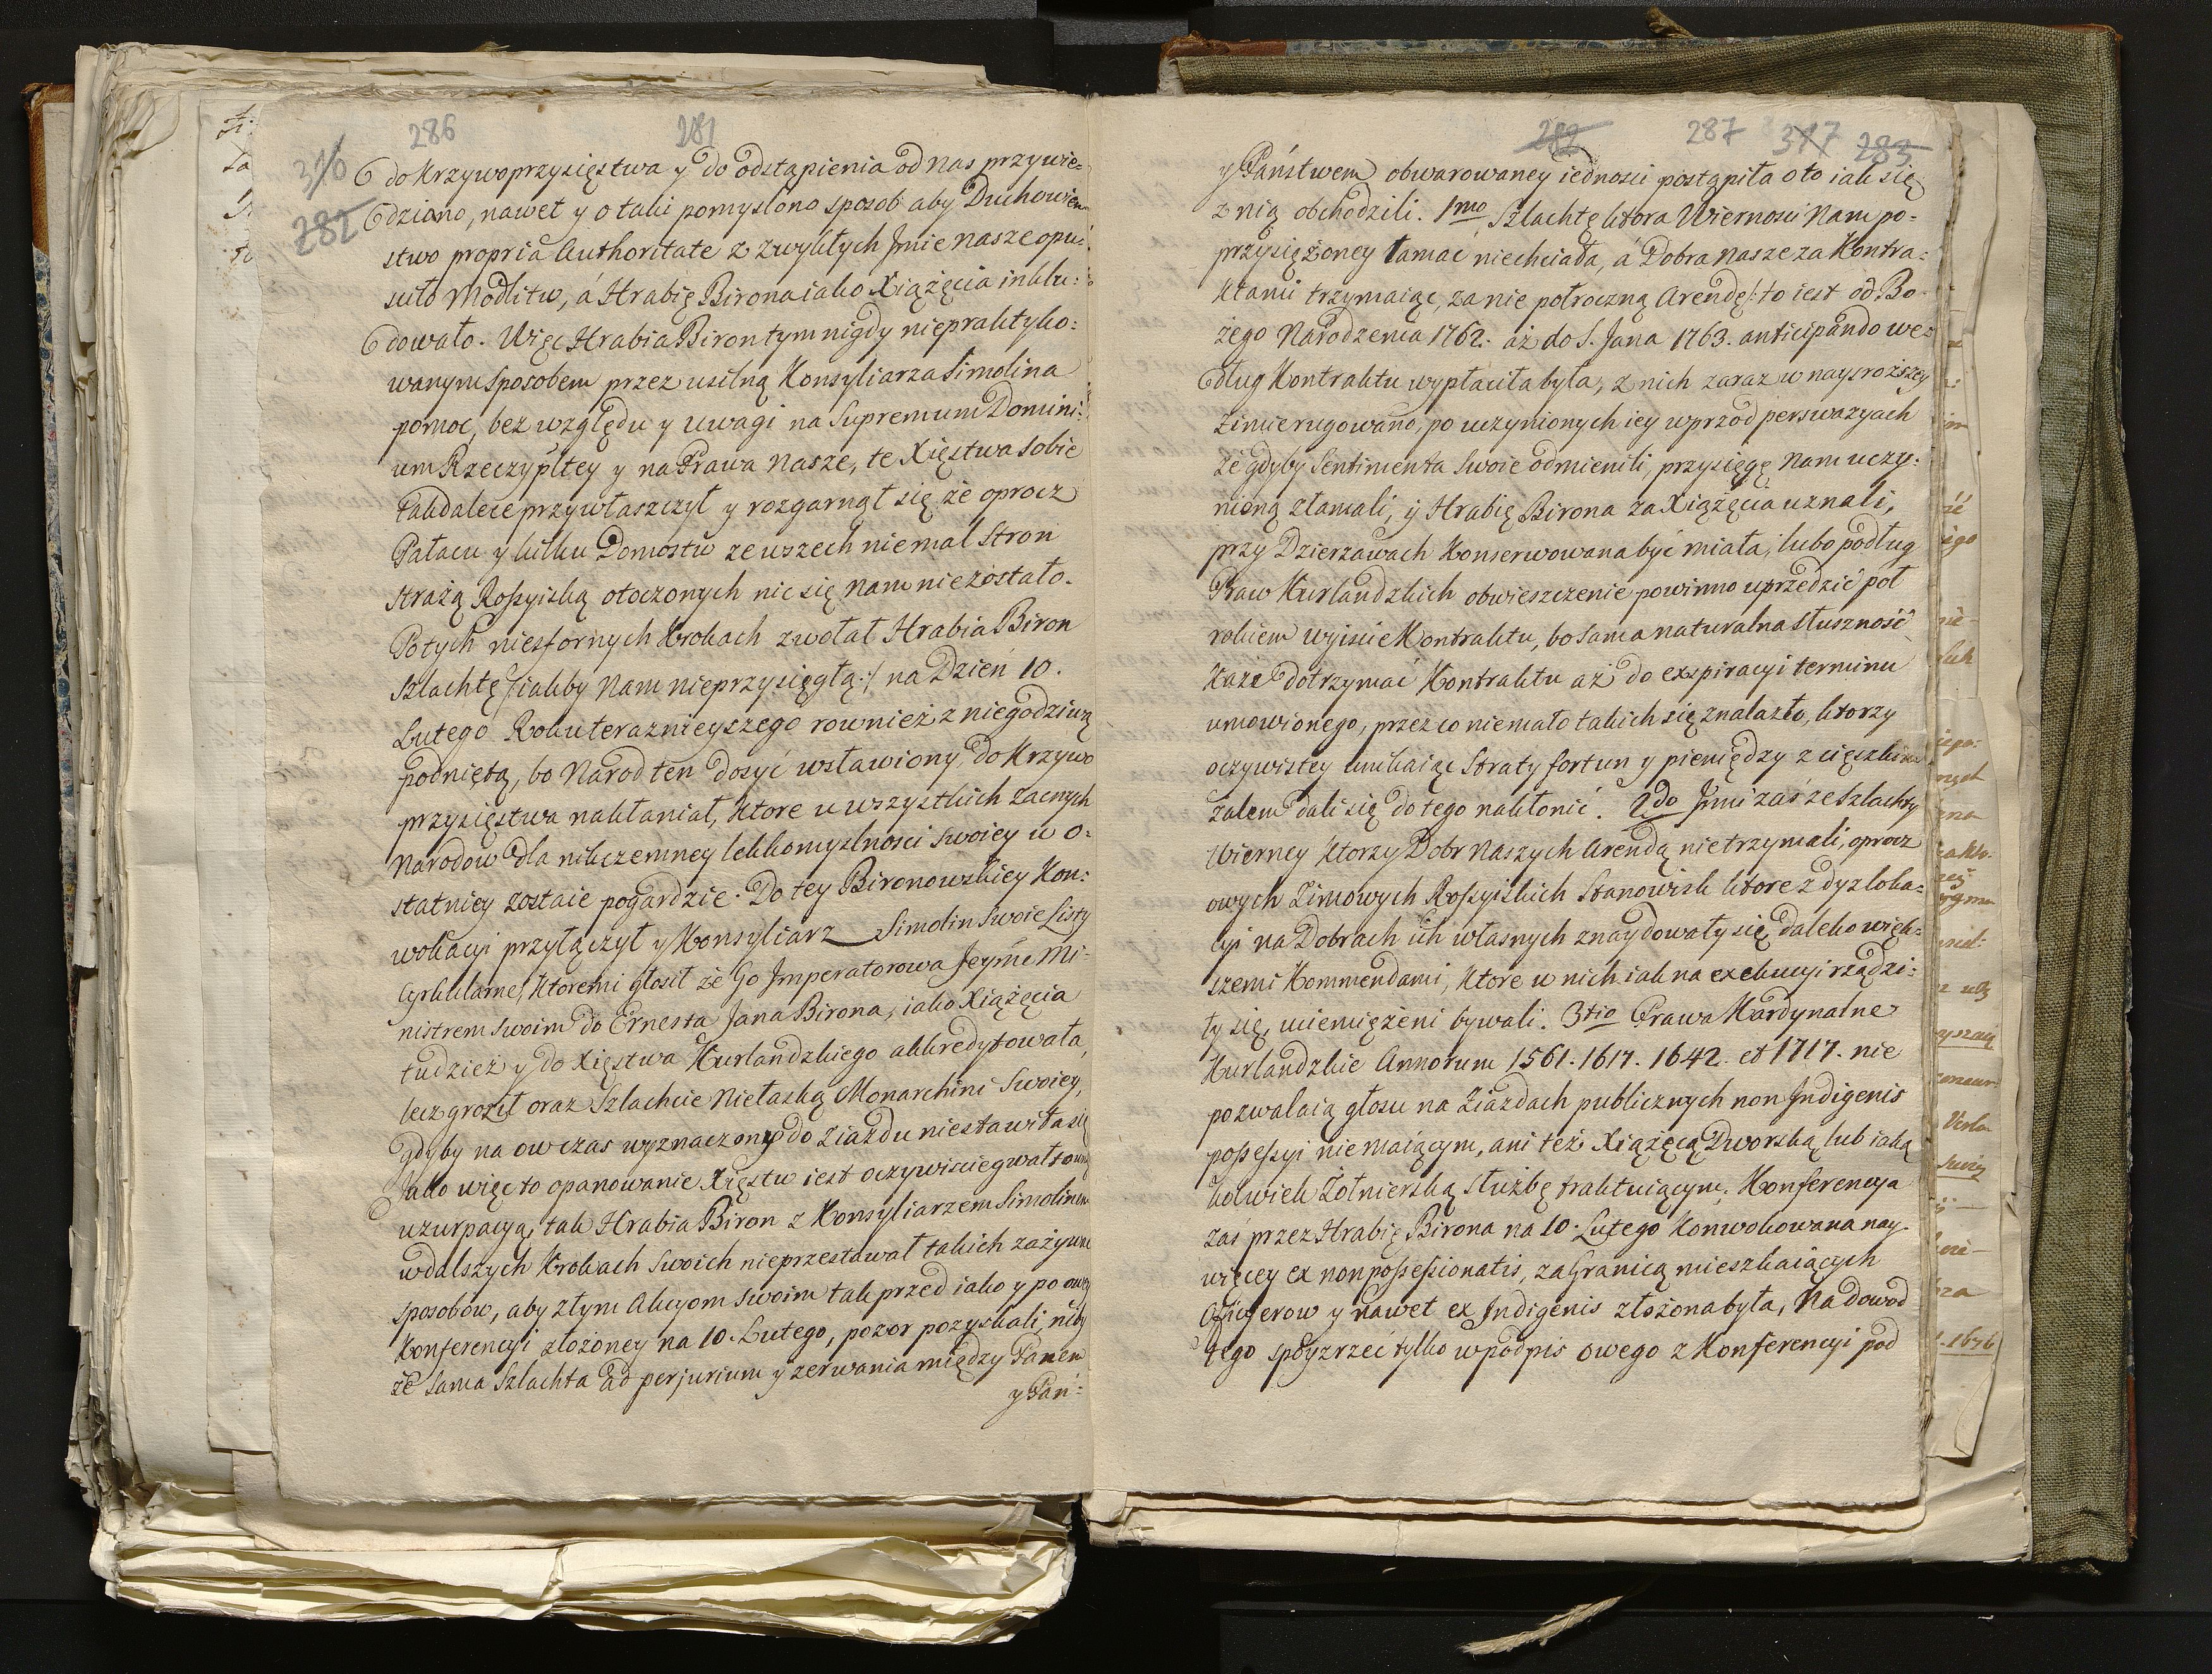 286 281
316
282
do Krzywoprzysięstwa y do odstąpienia od Nas przywie=
dziono, nawet y o taki pomyslono sposob aby Duchowień
stwo propria Authoritate z zwykłych Jmie Nasze opu=
sciło Modlitw, á Hrabię Birona iako Xiążęcia inklu=
dowało. Więc Hrabia Biron tym nigdy niepraktyko=
wanym sposobem przez usilną Konsyliarza Simolina
pomoc, bez względu y uwagi na Supremum Domini=
um Rzeczypltey y na Prawa Nasze, te Xięstwa sobie
takdalece przywłaszczył y rozgarnął się że oprocz
Pałacu y kilku Domostw ze wszech niemal Stron
strażą Rossyiską otoczonych nic się Nam nie zostało.
Po tych niesfornych Krokach zwołał Hrabia Biron
Szlachtę /: iakby Nam nieprzysięgłą :/ na Dzień 10.
Lutego Roku teraznieyszego rownież z niegodziwą
podnietą, bo Narod ten dosyć wsławiony do Krzywo
przysięstwa nakłaniał, Ktore u wszystkich zacnych
Narodow dla nikczemney lekkomyslnosci swoiey w o=
statniey zostaie pogardzie. Do tey Bironowskiey Kon=
wokacyi przyłączył y Konsyliarz Simolin swoie Listy
Cyrkularne, Ktoremi głosił że Go Imperatorowa Jeymć Mi=
nistrem swoim do Ernesta Jana Birona, iako Xiążęcia
tudzież y do Xięstwa Kurlandzkiego akkredytowała,
lecz groził oraz Szlachcie Niełaską Monarchini Swoiey,
gdyby na owczas wyznaczony do Ziazdu niestawiła się
Jako więc to opanowanie Xięstw iest oczywiscie gwałtowną
uzurpacyą, tak Hrabia Biron z Konsyliarzem Simolinem
wdalszych Krokach swoich nieprzestawał takich zażywać
sposobow, aby złym Akcyom swoim tak przed iako y po owey
Konferencyi złożoney na 10. Lutego, pozor pozyskali, niby
że sama Szlachta ad perjurium y zerwania między Panem
y Pań=
282 287 317 283
y Państwem obwarowaney iednosci postąpiła oto iak się
z nią obchodzili. 1mo Szlachtę ktora Wiernosci Nam po=
przysiężoney łamać niechciała, á Dobra Nasze za Kontra=
ktami trzymaiąc, za nie połroczną Arendę /: to iest od Bo=
żego Narodzenia 1762. aż do S. Jana 1763. anticipando we=
dług Kontraktu wypłaciła była, z nich zaraz w naysroższey
Zimie rugowano, po uczynionych iey wprzod perswazyach
że gdyby Sentimenta swoie odmienili, przysięgę Nam uczy=
nioną złamali, ij Hrabię Birona za Xiążęcia uznali,
przy Dzierzawach Konserwowana być miała, lubo podług
Praw Kurlandzkich obwieszczenie powinno uprzedzić poł
rokiem wyiscie Kontraktu, bo sama naturalna słuszność
Każe dotrzymać Kontraktu aż do exspiracyi terminu
umowionego, przez co niemało takich się znalazło, ktorzy
oczywistey unikaiąc Straty fortun y pieniędzy z cięszkim
żalem dali się do tego nakłonić. 2do Jnni zaś ze Szlachty
Wierney Ktorzy Dobr Naszych Arendą nietrzymali, oprocz
owych Zimowych Rossyiskich Stanowisk ktore z dyzloka=
cyi na Dobrach ich własnych znaydowały się, daleko więk=
szemi Kommendami, Ktore w nich iak na exekucyi rządzi=
ły się, uciemiężeni bywali. 3tio Prawa Kardynalne
Kurlandzkie Annorum 1561. 1617. 1642. et 1717. nie
pozwalaią głosu na Ziazdach publicznych non Jndigenis
possessyi niemaiącym, ani też Xiążęcą Dworską, lub iaką
kolwiek Żołnierską służbę traktuiącym. Konferencya
zaś przez Hrabię Birona na 10. Lutego Konwokowana nay=
więcey ex nonpossessionatis, zaGranicą mieszkaiących
Officyerow y nawet ex Jndigenis złożona była, Na dowod
tego spoyzrzeć tylko w podpis owego z Konferencyi pod